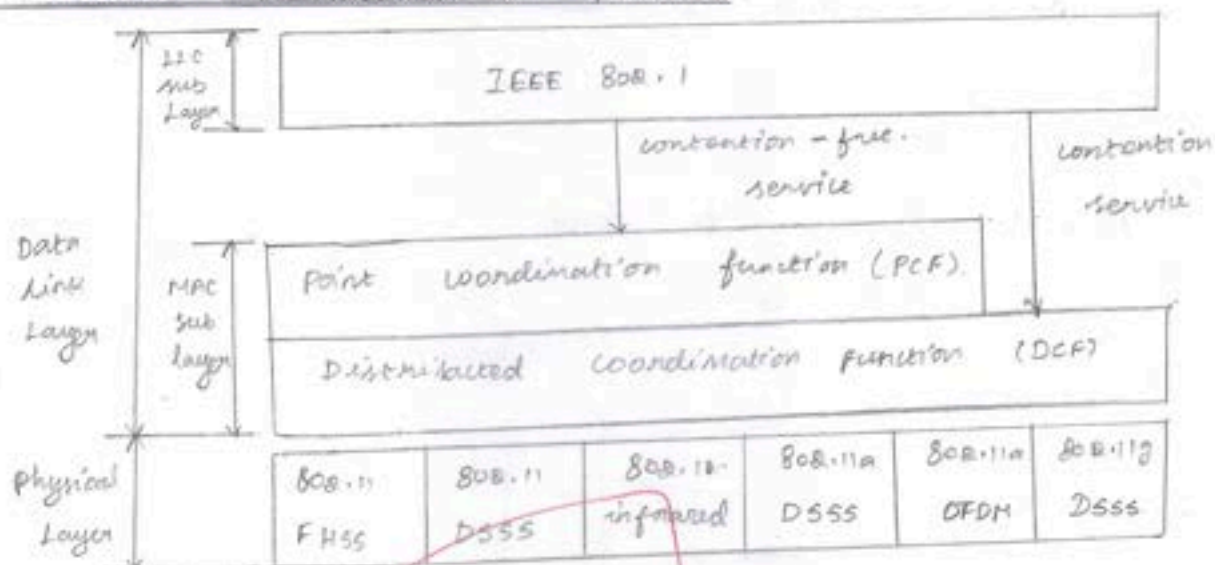 LLC
sub
Layer
IEEE 802.1
contention - free.
service
contention
service
Data
Link
Layer
MAC
sub
layer
Point coordination function (PCF).
Distributed coordination Function (DCF)
Physical
Layer
802.11
FHSS
802.11
DSSS
802.11
infrared
802.11a
DSSS
802.11a
OFDM
802.11g
DSSS